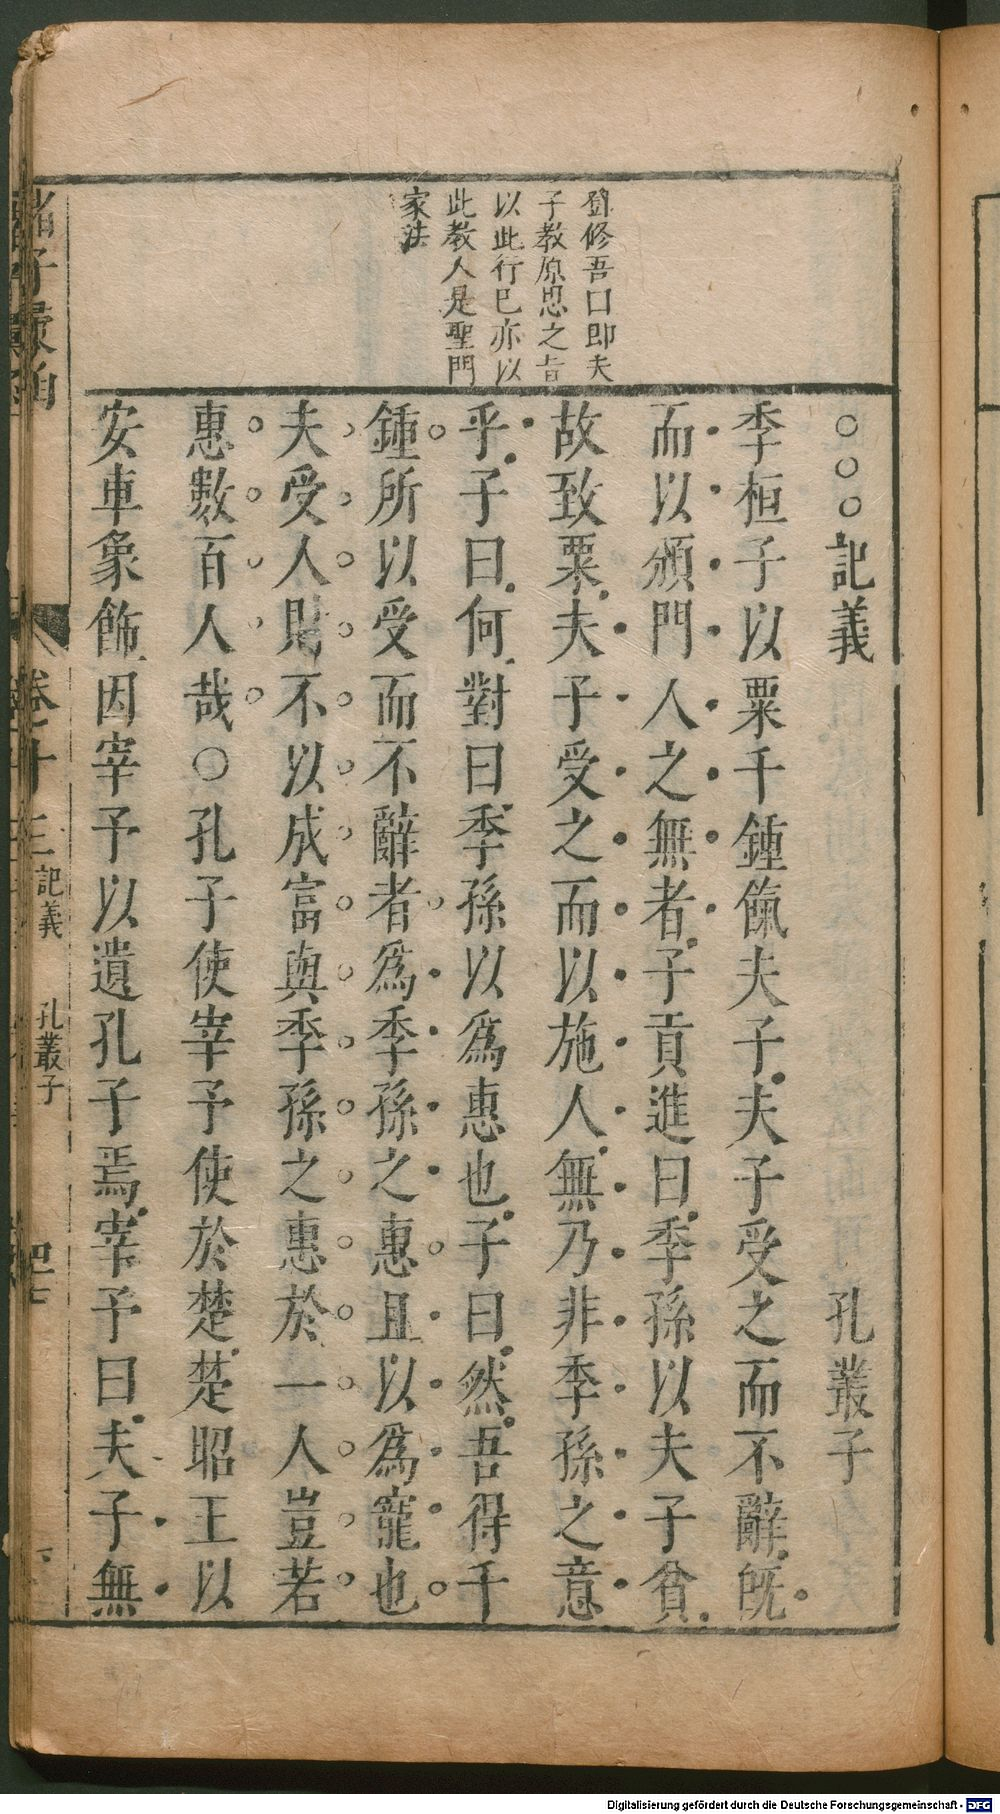 鄧修吾曰即夫
子教原思之旨
以此行巳亦以
此教人是聖門
家法
○○○記義 孔叢子
季桓子以粟千鍾餼夫子夫子受之而不辭旣
而以頒門人之無者子貢進曰季孫以夫子貧
故致粟夫子受之而以施人無乃非季孫之意
乎子曰何對曰季孫以爲惠也子曰然吾得千
鍾所以受而不辭者爲季孫之惠且以爲寵也
夫受人財不以成富與季孫之惠於一人豈若
惠數百人哉○孔子使宰予使於楚楚昭王以
安車象飾因宰予以遺孔子焉宰予曰夫子無
卷七十三記義 孔叢子
Digitalisierung gefördert durch die Deutsche Forschungsgemeinschaft - DFG